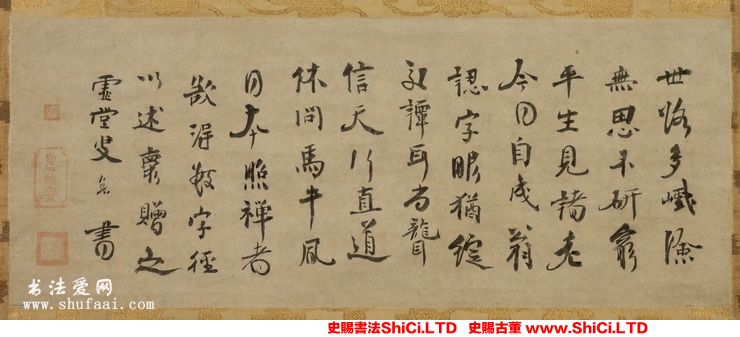 世路多巇嶮
無思不研窮
平生見諸老
今日自成翁
認字眼猶綻
交譚耳尚聾
信天行直道
休問馬牛風
日本照禪者
欲得數字徑
以述懷贈之
虛堂叟智愚書
书法爱网
www.shufaai.com
史賜書法ShiCi.LTD 史賜古董 www.ShiCi.LTD